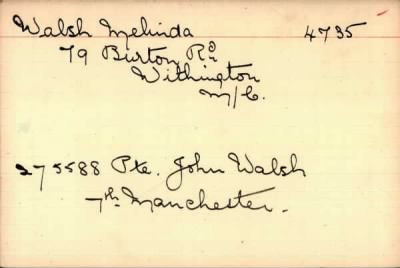 Walsh Melinda 4735
79 Burton Rd
Withington
M/C.
275588 Pte. John Walsh
7th Manchester.